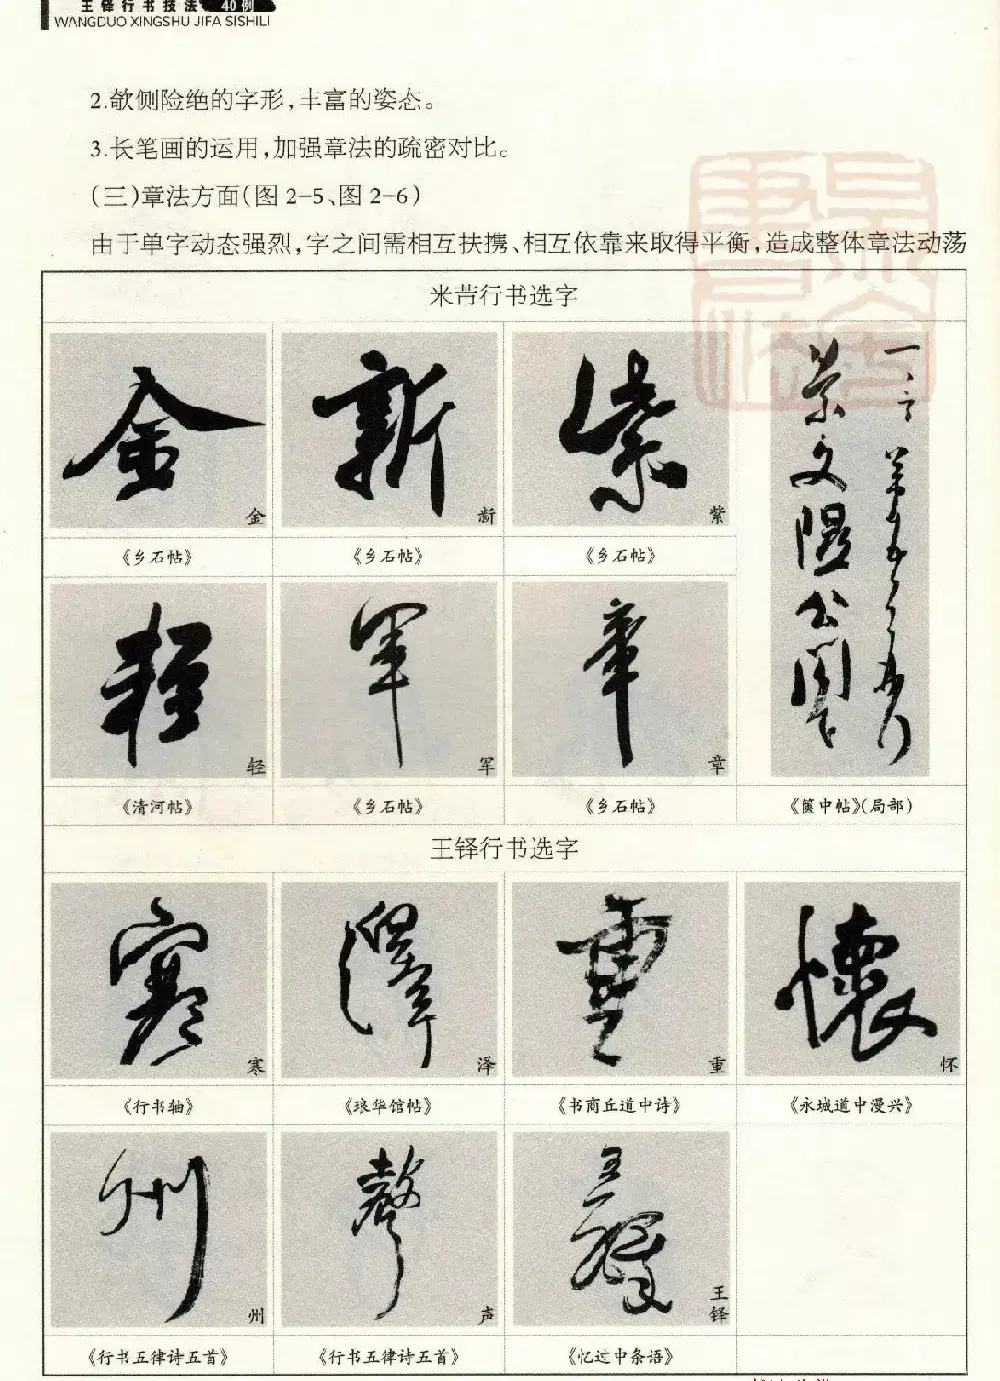 王铎行书技法40例
WANGDUO XINGSHU JIFA SISHILI
2.欹侧险绝的字形,丰富的姿态。
3.长笔画的运用,加强章法的疏密对比。
(三)章法方面(图2-5、图2-6)
由于单字动态强烈,字之间需相互扶携、相互依靠来取得平衡,造成整体章法动荡
米芾行书选字
金
新
紫
《乡石帖》
《乡石帖》
《乡石帖》
轻
军
章
《清河帖》
《乡石帖》
《乡石帖》
《箧中帖》(局部)
王铎行书选字
寒
泽
重
怀
《行书轴》
《琅华馆帖》
《书商丘道中诗》
《永城道中漫兴》
州
声
王铎
《行书五律诗五首》
《行书五律诗五首》
《忆过中条语》